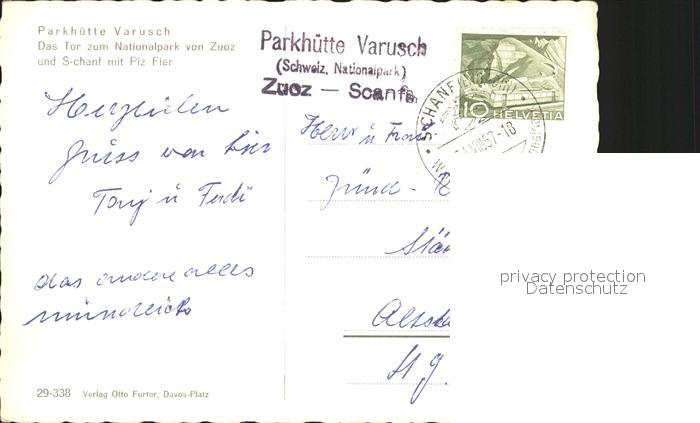 Parkhütte Varusch
Das Tor zum Nationalpark von Zuoz
und S-chanf mit Piz Fier
Parkhütte Varusch
(Schweiz, Nationalpark)
Zuoz — Scanfs
10 HELVETIA
S-CHANF
VIII.57-18
Herzlichen
Gruss von hier
Tony u Ferdi
das andere alles
mündlich
Herr u Frau
Zünd -
Altst
St g.
privacy protection
Datenschutz
29-338 Verlag Otto Furter, Davos-Platz